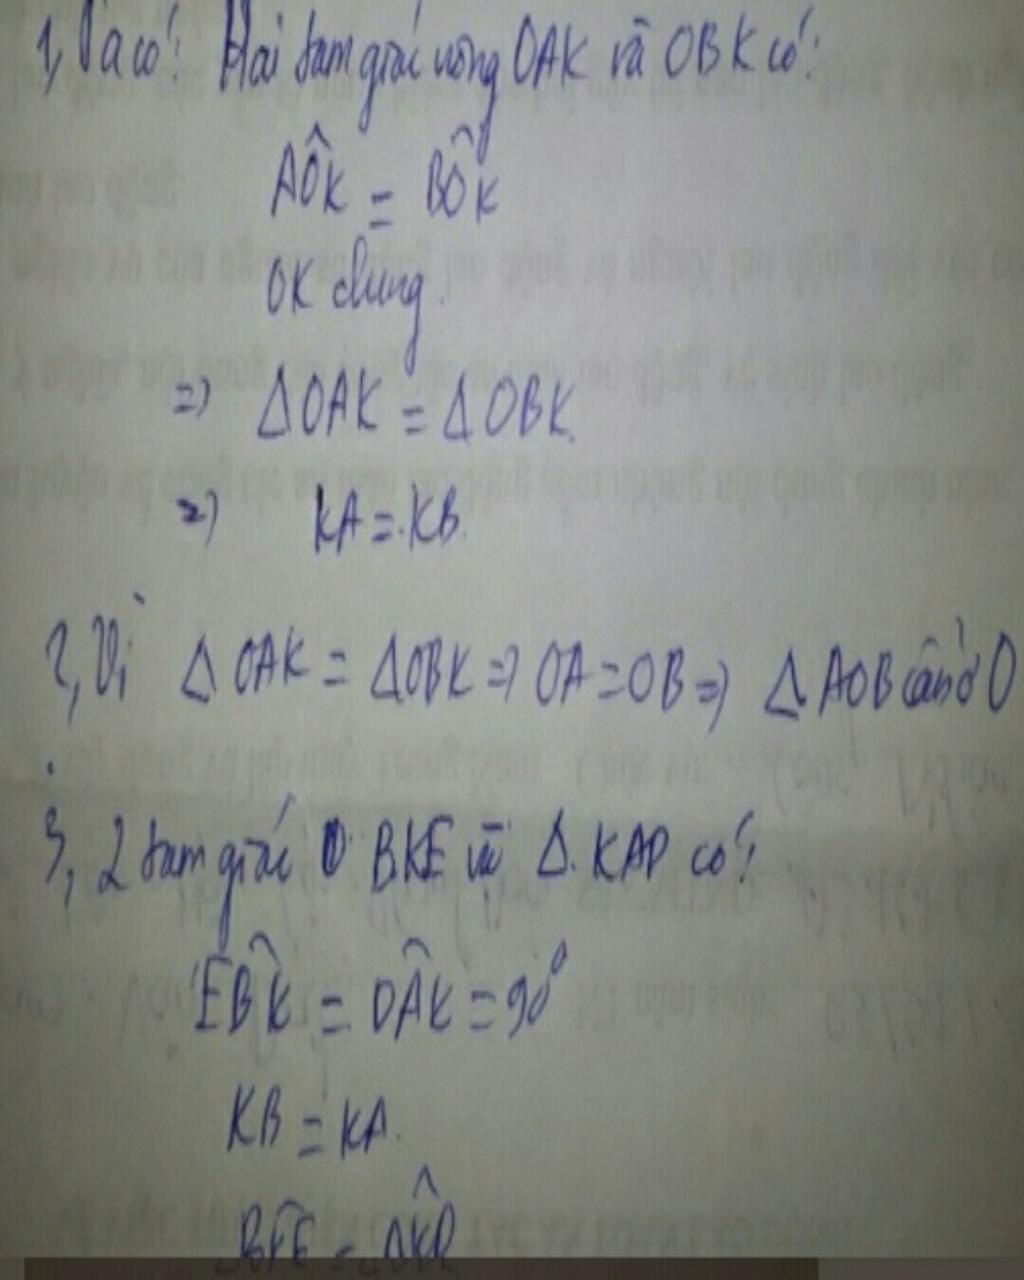 1, Ta có: Hai tam giác vuông OAK và OBK có:
AÔK = BÔK
OK chung.
=> ΔOAK = ΔOBK.
=> KA = KB.
2, Vì ΔOAK = ΔOBK => OA = OB => ΔAOB cân ở O
3, 2 tam giác BKE và Δ.KAD có:
EB̂K = DÂK = 90°
KB = KA.